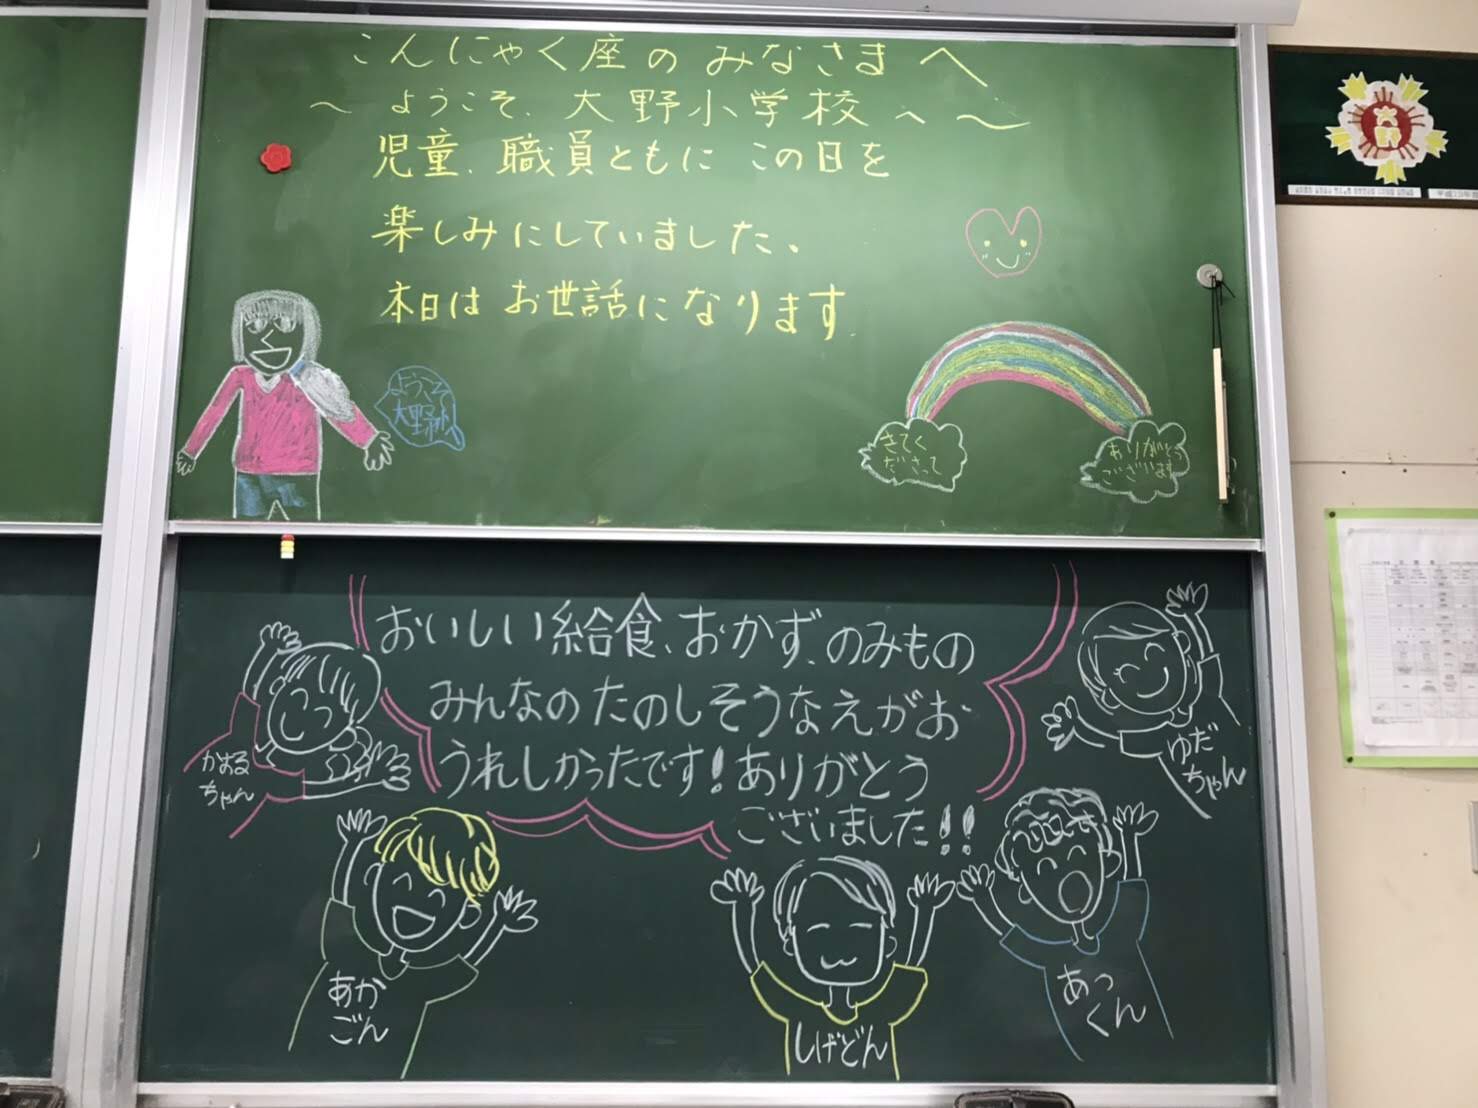 こんにゃく座の みなさまへ
～ ようこそ、大野小学校へ ～
児童、職員ともに この日を
楽しみにしていました、
本日は お世話になります
ようこそ
大野
きてく
ださって
ありがとう
ございます
大野
おいしい給食、おかず、のみもの
みんなの たのしそうなえがお
うれしかったです！ありがとう
ございました！！
かおる
ちゃん
ゆだ
ちゃん
あか
ごん
しげどん
あっ
くん